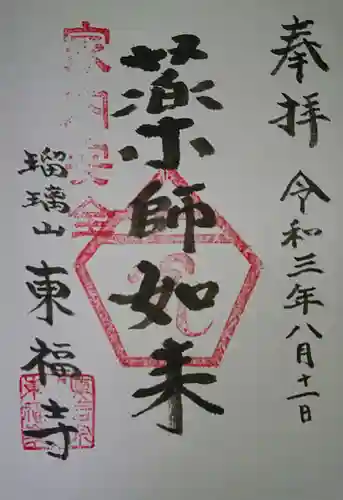 奉拝
令和三年八月十一日
薬師如来
家内安全
瑠璃山
東福寺